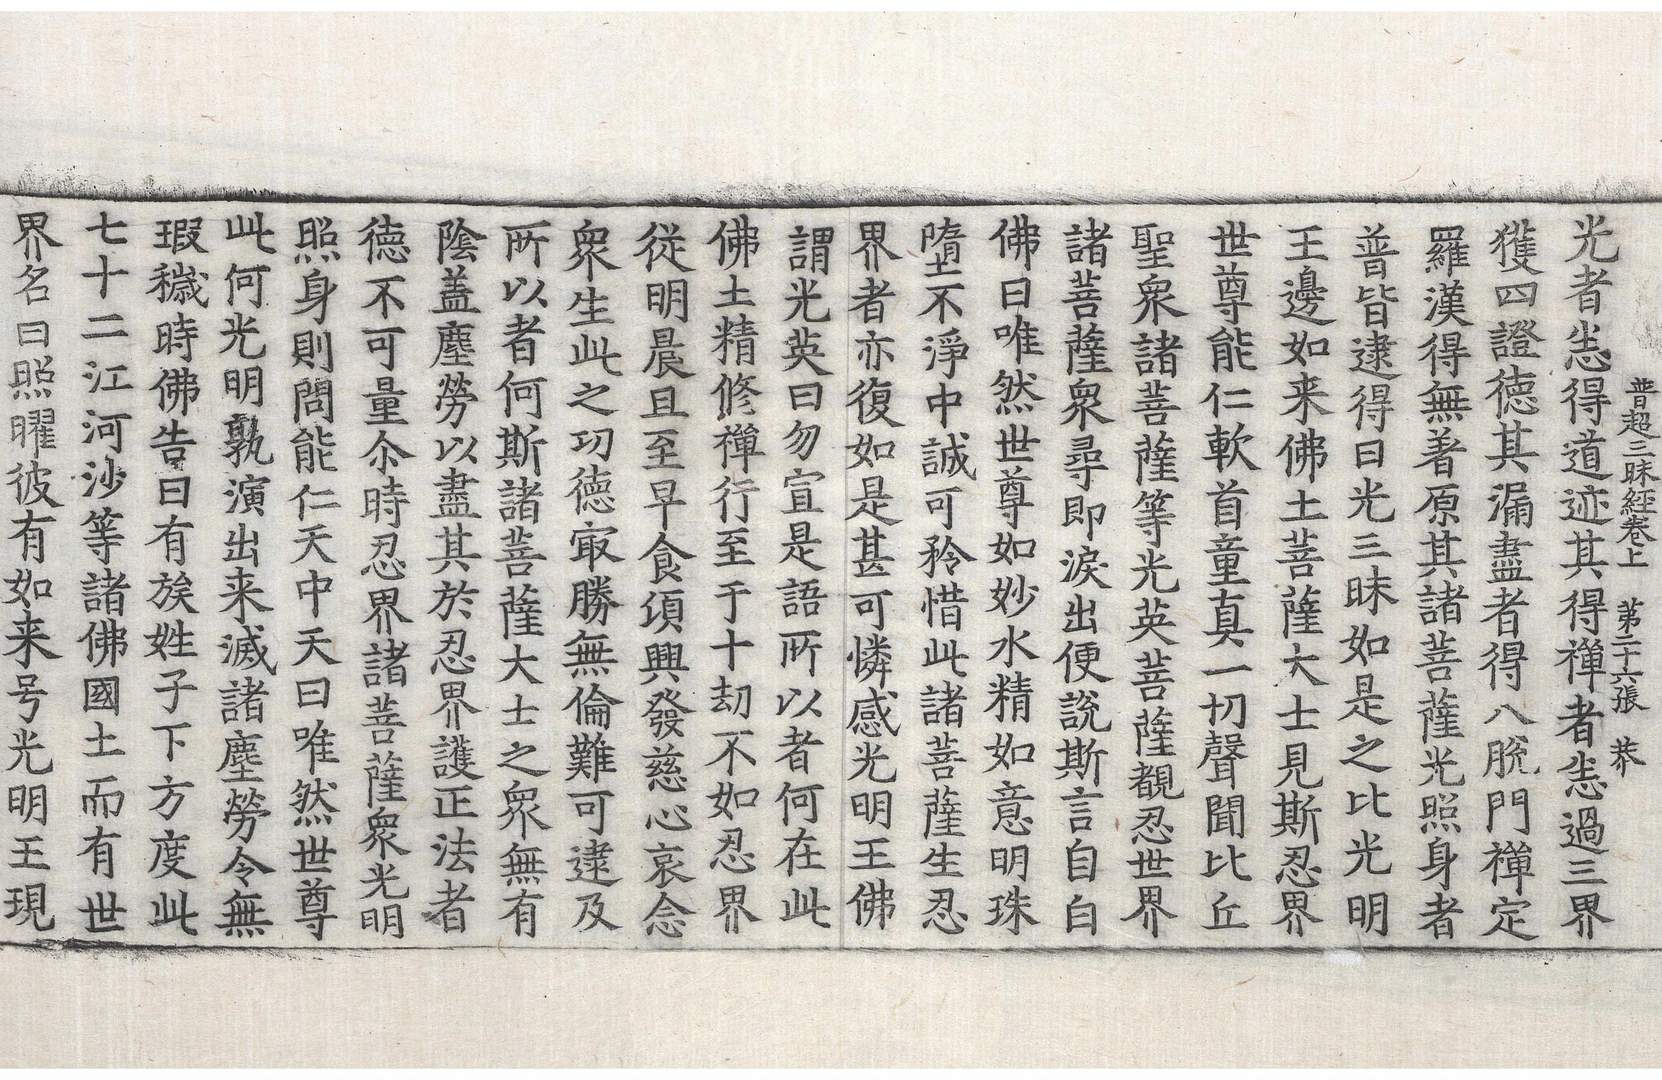 普超三昧経巻上　第二十六張　恭
光者恙得道迹其得禪者恙過三界
獲四證德其漏盡者得八脫門禪定
羅漢得無著原其諸菩薩光照身者
普皆逮得曰光三昧如是之比光明
王邊如来佛土菩薩大士見斯忍界
世尊能仁軟首童真一切聲聞比丘
聖衆諸菩薩等光英菩薩覩忍世界
諸菩薩衆尋即淚出便說斯言自自
佛曰唯然世尊如妙水精如意明珠
墮不淨中誠可矜惜此諸菩薩生忍
界者亦復如是甚可憐感光明王佛
謂光英曰勿宣是語所以者何在此
佛土精修禪行至于十劫不如忍界
從明晨旦至早食頃興發慈心哀念
衆生此之功德㝡勝無倫難可逮及
所以者何斯諸菩薩大士之衆無有
陰盖塵勞以盡其於忍界護正法者
德不可量尒時忍界諸菩薩衆光明
照身則問能仁天中天曰唯然世尊
此何光明孰演出来滅諸塵勞令無
瑕穢時佛告曰有族姓子下方度此
七十二江河沙等諸佛國土而有世
界名曰照曜彼有如来号光明王現